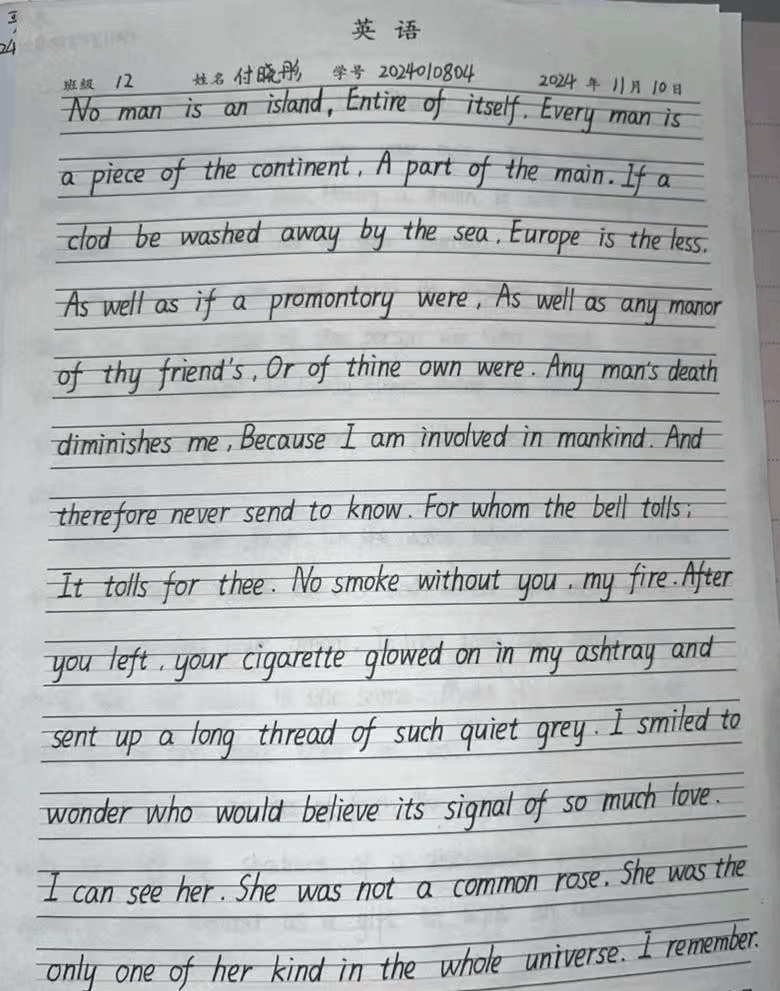 英 语
班级 12 姓名 付晓彤 学号 2024010804 2024 年 11月 10日
No man is an island, Entire of itself. Every man is
a piece of the continent, A part of the main. If a
clod be washed away by the sea, Europe is the less.
As well as if a promontory were, As well as any manor
of thy friend's, Or of thine own were. Any man's death
diminishes me, Because I am involved in mankind. And
therefore never send to know. For whom the bell tolls;
It tolls for thee. No smoke without you, my fire. After
you left, your cigarette glowed on in my ashtray and
sent up a long thread of such quiet grey. I smiled to
wonder who would believe its signal of so much love.
I can see her. She was not a common rose. She was the
only one of her kind in the whole universe. I remember.